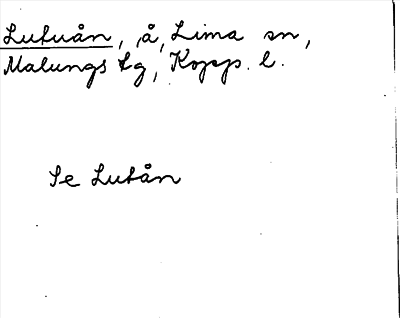 Lutuån, å, Lima sn,
Malungs tg, Kopp. l.
Se Lutån